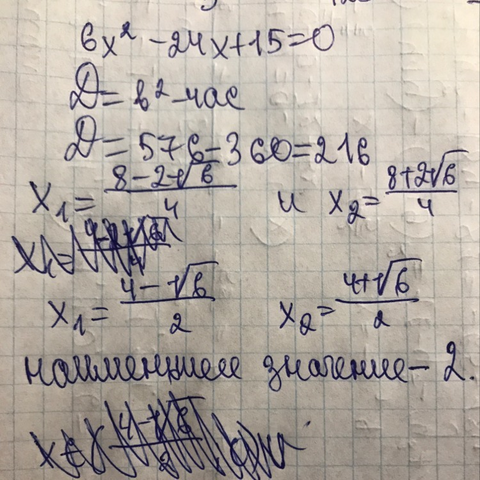 6x² - 24x + 15 = 0
D = b² - 4ac
D = 576 - 360 = 216
x₁ = (8 - 2√6)/4 и x₂ = (8 + 2√6)/4
x₁ = (4 - √6)/2 x₂ = (4 + √6)/2
наименшее значение - 2.